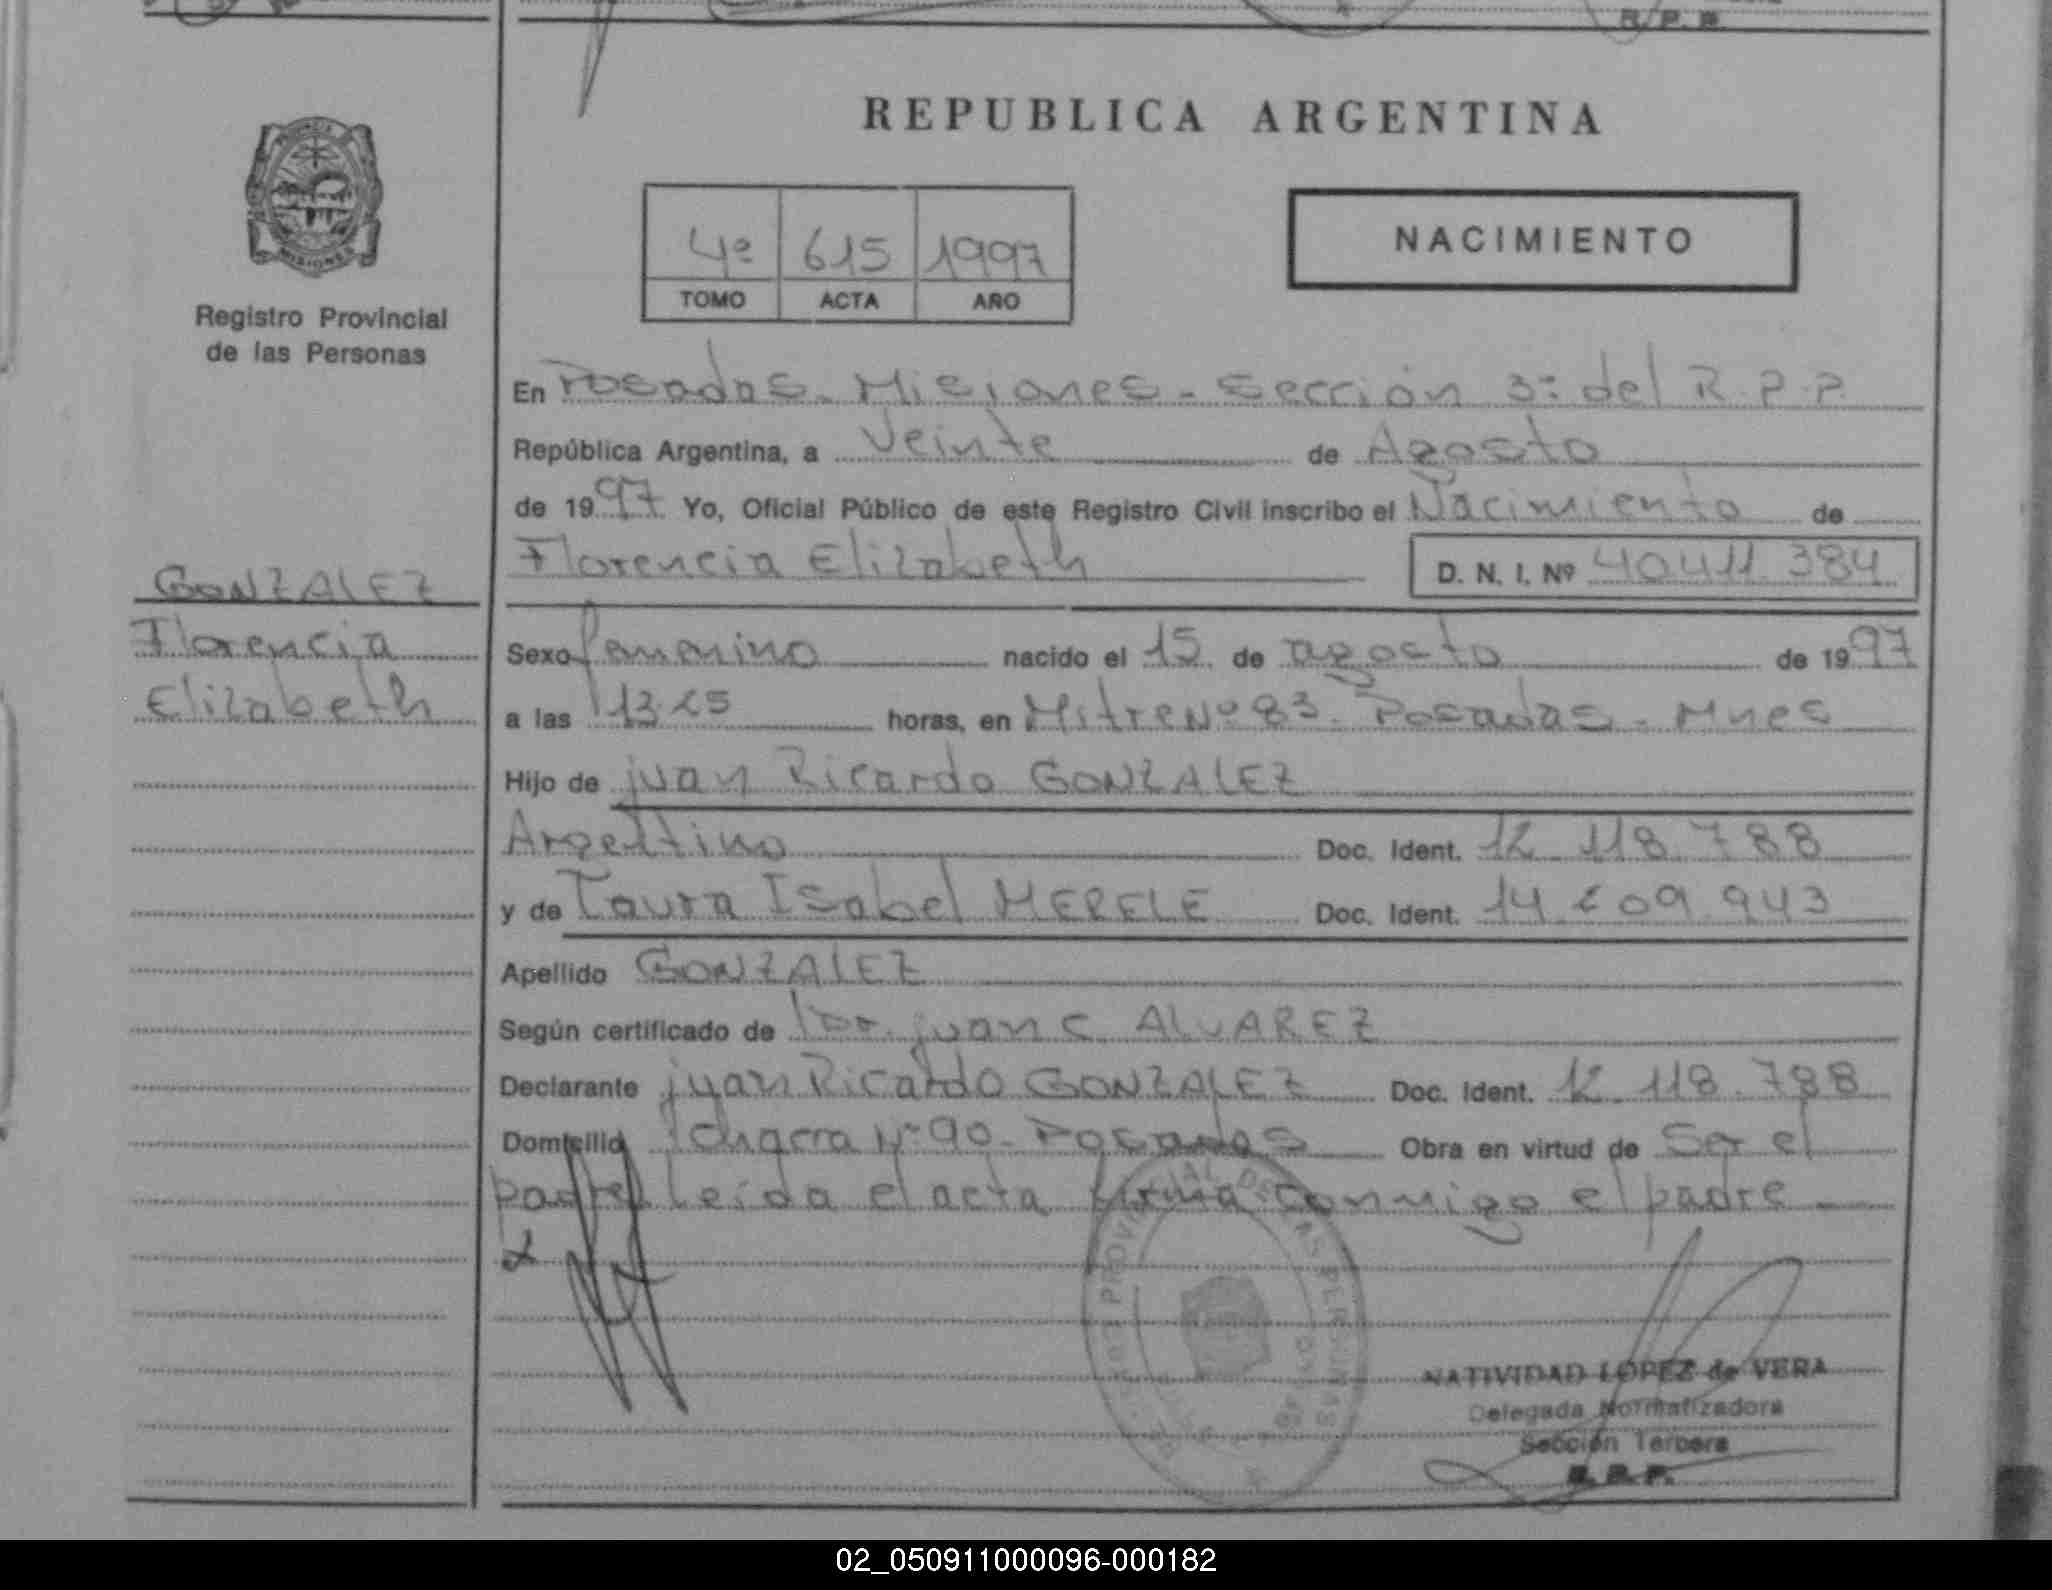 R. P. P.
REPUBLICA ARGENTINA
4º 615 1997
TOMO ACTA AÑO
NACIMIENTO
MISIONES
Registro Provincial
de las Personas
En Posadas - Misiones - Sección 3ª del R.P.P.
República Argentina, a Veinte de Agosto
de 1997 Yo, Oficial Público de este Registro Civil inscribo el Nacimiento de
Florencia Elizabeth D. N. I. Nº 40.411.384
GONZALEZ
Florencia
Elizabeth
Sexo femenino nacido el 15 de agosto de 1997
a las horas, en Mitre Nº 83. Posadas - Mnes
Hijo de Juan Ricardo GONZALEZ
Argentino Doc. Ident. 12.118.788
y de Laura Isabel MERELE Doc. Ident. 14.209.943
Apellido GONZALEZ
Según certificado de Dr. Juan C. ALVAREZ
Declarante Juan Ricardo GONZALEZ Doc. Ident. 12.118.788
Domicilio Chacra Nº 90 - Posadas Obra en virtud de Ser el
padre Leída el acta firma conmigo el padre
PROVINCIAL DE LAS PERSONAS
NATIVIDAD LOPEZ de VERA
Delegada Normatizadora
Sección Tercera
R. P. P.
02_050911000096-000182